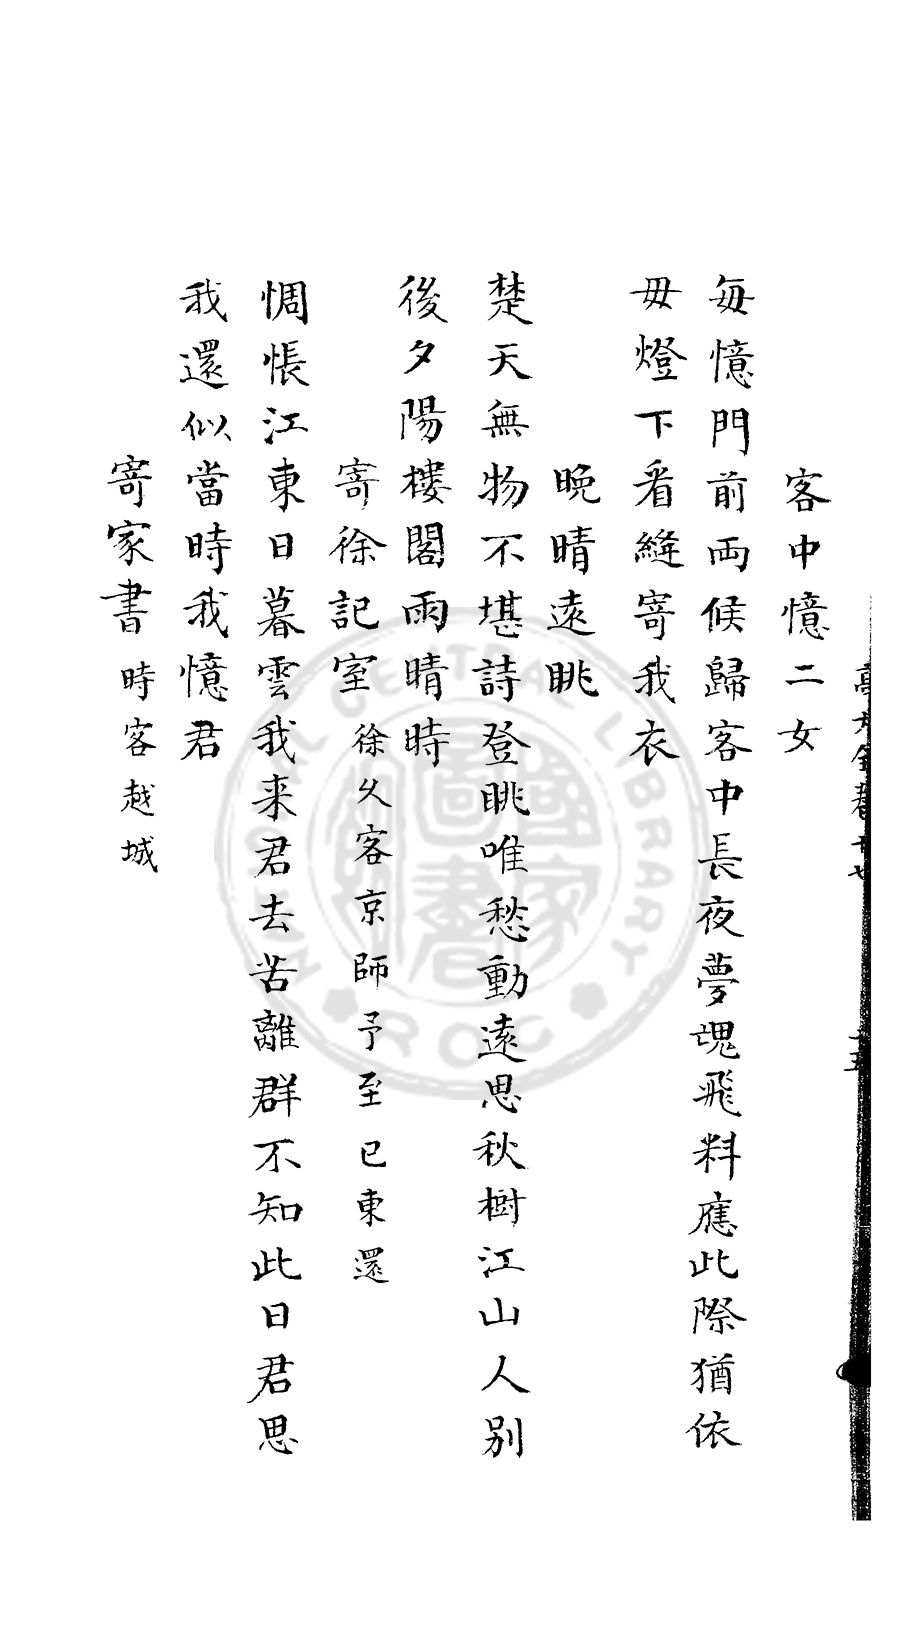 客中憶二女
每憶門前両候歸客中長夜夢魂飛料應此際猶依
毋燈下看縫寄我衣
晚晴遠眺
楚天無物不堪詩登眺唯愁動遠思秋樹江山人别
後夕陽樓閣雨晴時
寄徐記室 徐久客京師予至已東還
惆悵江東日暮雲我来君去苦離群不知此日君思
我還似當時我憶君
寄家書 時客越城
NATIONAL CENTRAL LIBRARY
ROC
國家圖書館